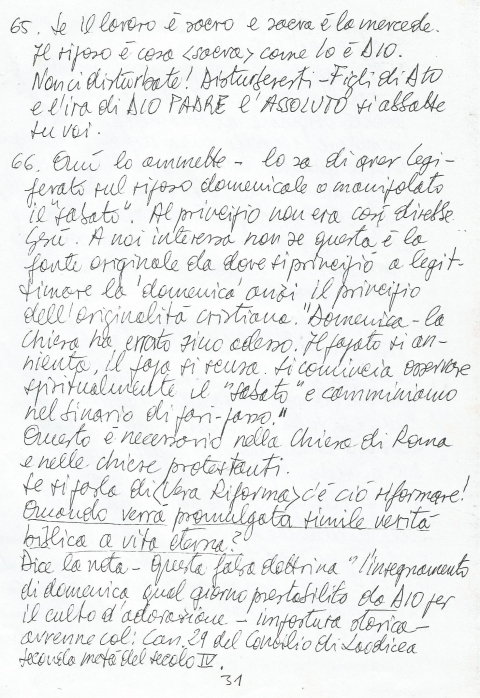 65. Se il lavoro è sacro e sacra è la mercede.
Il riposo è cosa <sacra> come lo è DIO.
Non ci disturbate! Disturberesti - Figli di Dio
e l'ira di DIO PADRE l'ASSOLUTO si abbatte
su voi.
66. lo ammette - lo sa di aver legi-
ferato sul riposo domenicale o manipolato
il "sabato". Al principio non era così direbbe
Gesù. A noi interessa non se questa è la
fonte originale da dove si principiò a legit-
timare la 'domenica' anzi il principio
dell'originalità cristiana. "Domenica - la
Chiesa ha errato sino adesso. Il papato si an-
nienta, il papa si scusa. Si comincia osservare
spiritualmente il "sabato" e camminiamo
nel binario di pari-passo."
Questo è necessario nella Chiesa di Roma
e nelle chiese protestanti.
Se si parla di <Vera Riforma> c'è ciò riformare!
Quando verrà promulgata simile verità
biblica a vita eterna?
Dice la nota - Questa falsa dottrina "l'insegnamento
di domenica qual giorno prestabilito da DIO per
il culto d'adorazione - impostura storica -
avvenne col: Can. 29 del Concilio di Laodicea
seconda metà del secolo IV.
31